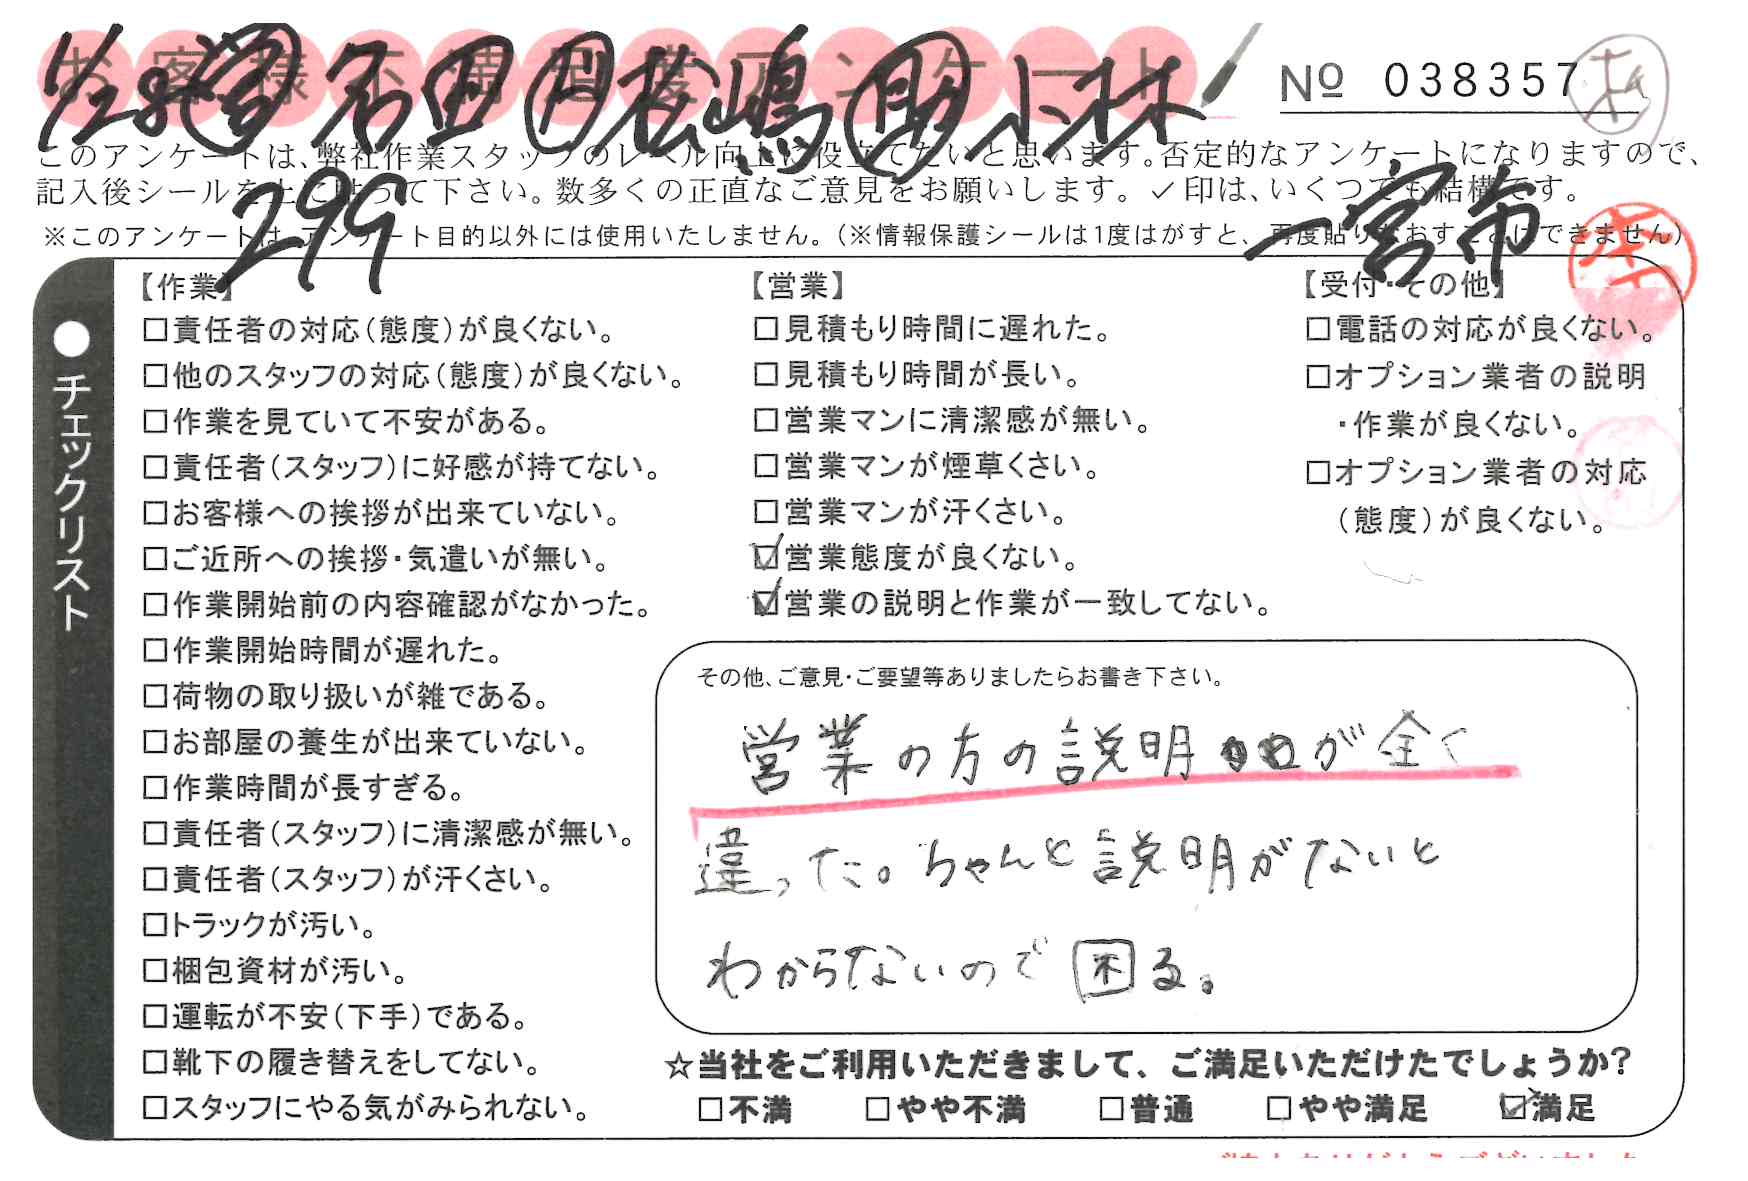 お客様不満足度アンケート
1/28 営 石田 作 松嶋 助 小林
№ 038357
このアンケートは、弊社作業スタッフのレベル向上に役立てたいと思います。否定的なアンケートになりますので、
記入後シールを上に貼って下さい。数多くの正直なご意見をお願いします。✓印は、いくつでも結構です。
299
一宮市
※このアンケートは、アンケート目的以外には使用いたしません。(※情報保護シールは1度はがすと、再度貼りなおすことはできません)
●チェックリスト
【作業】
□責任者の対応(態度)が良くない。
□他のスタッフの対応(態度)が良くない。
□作業を見ていて不安がある。
□責任者(スタッフ)に好感が持てない。
□お客様への挨拶が出来ていない。
□ご近所への挨拶・気遣いが無い。
□作業開始前の内容確認がなかった。
□作業開始時間が遅れた。
□荷物の取り扱いが雑である。
□お部屋の養生が出来ていない。
□作業時間が長すぎる。
□責任者(スタッフ)に清潔感が無い。
□責任者(スタッフ)が汗くさい。
□トラックが汚い。
□梱包資材が汚い。
□運転が不安(下手)である。
□靴下の履き替えをしてない。
□スタッフにやる気がみられない。
【営業】
□見積もり時間に遅れた。
□見積もり時間が長い。
□営業マンに清潔感が無い。
□営業マンが煙草くさい。
□営業マンが汗くさい。
☑営業態度が良くない。
☑営業の説明と作業が一致してない。
【受付・その他】
□電話の対応が良くない。
□オプション業者の説明
・作業が良くない。
□オプション業者の対応
(態度)が良くない。
その他、ご意見・ご要望等ありましたらお書き下さい。
営業の方の説明が全く
違った。ちゃんと説明がないと
わからないので困る。
☆当社をご利用いただきまして、ご満足いただけたでしょうか?
□不満 □やや不満 □普通 □やや満足 ☑満足